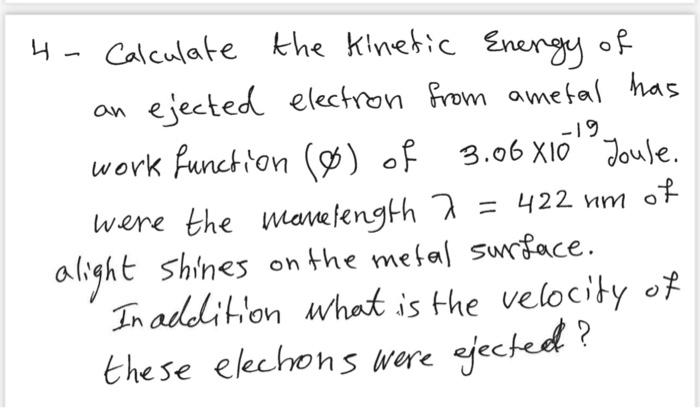 4 - Calculate the Kinetic Energy of
an ejected electron from ametal has
work function (ϕ) of 3.06 X10⁻¹⁹ Joule.
were the wavelength λ = 422 nm of
alight shines on the metal surface.
In addition what is the velocity of
these elechons were ejected?